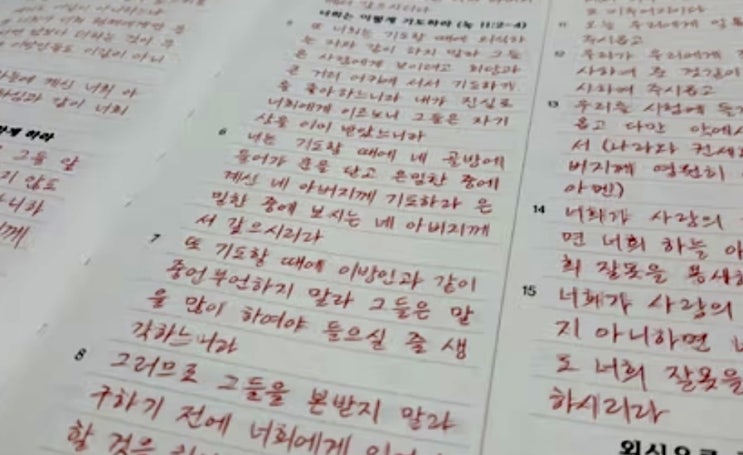 면 남보다 더하는 것이 무
이방인들도 이같이 아니
계신 너희 아
같이 너희
하게 하라
그를 앞
지 않도
너희는 이렇게 기도하라 (눅 11:2-4)
5 또 너희는 기도할 때에 외식하
는 자와 같이 하지 말라 그들
은 사람에게 보이려고 회당과
큰 거리 어귀에 서서 기도하기
를 좋아하느니라 내가 진실로
너희에게 이르노니 그들은 자기
상을 이미 받았느니라
6 너는 기도할 때에 네 골방에
들어가 문을 닫고 은밀한 중에
계신 네 아버지께 기도하라 은
밀한 중에 보시는 네 아버지께
서 갚으시리라
7 또 기도할 때에 이방인과 같이
중언부언하지 말라 그들은 말
을 많이 하여야 들으실 줄 생
각하느니라
8 그러므로 그들을 본받지 말라
구하기 전에 너희에게
할 것을
11 오늘 우리에게
주시옵고
12 우리가 우리에게
사하여 준 것같이
사하여 주시옵고
13 우리를 시험에
옵고 다만 악에서
서 (나라와 권세
버지께 영원히
아멘)
14 너희가 사람의
면 너희 하늘 아
희 잘못을 용서하
15 너희가 사람의
지 아니하면
도 너희 잘못을
하시리라
외식으로